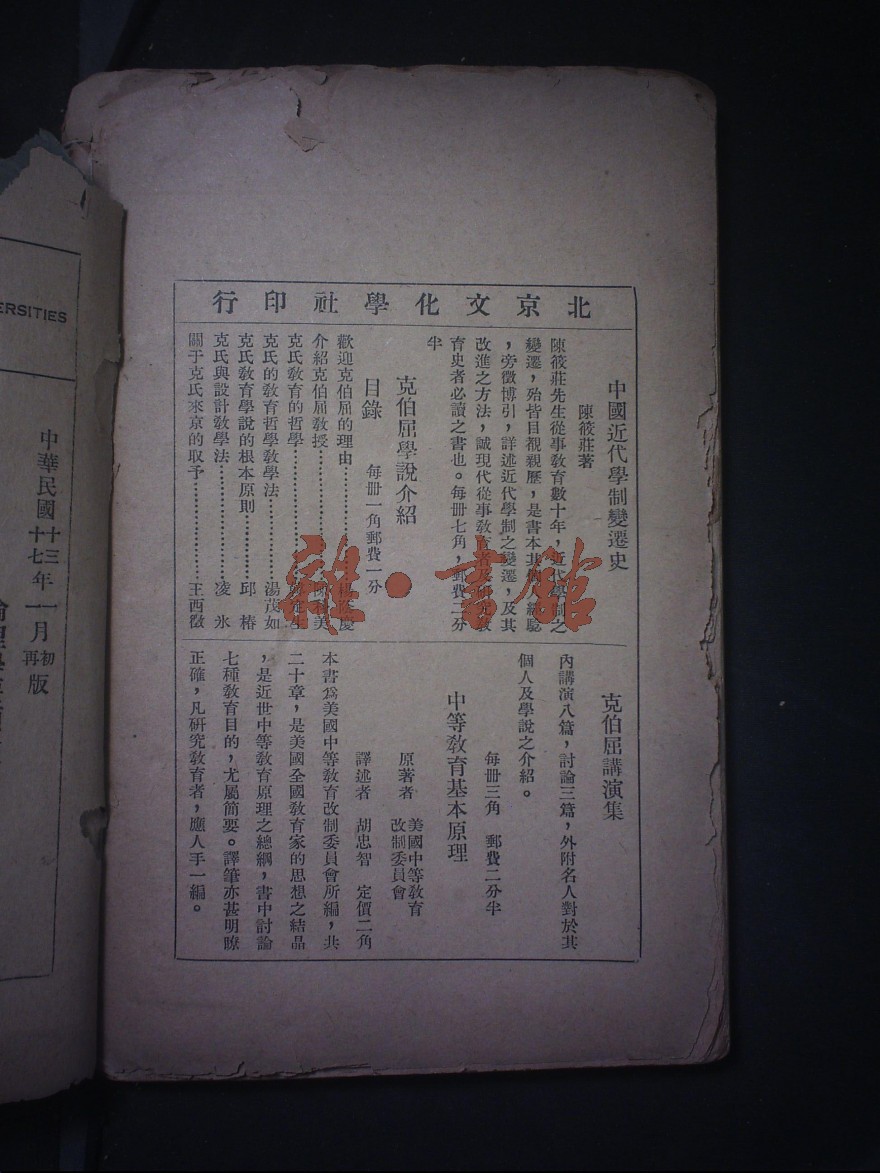 北京文化學社印行
中國近代學制變遷史
陳筱莊著
陳筱莊先生從事教育數十年，近代學制之
變遷，殆皆目覩親歷，是書本其
，旁徵博引，詳述近代學制之變遷，及其
改進之方法，誠現代從事教育者及研究教
育史者必讀之書也。每冊七角，郵費二分
半
克伯屈學說介紹
目錄　每冊一角郵費一分
歡迎克伯屈的理由…………慶
介紹克伯屈教授…………美
克氏教育的哲學…………生
克氏的教育哲學教學法…………湯茂如
克氏教育學說的根本原則…………邱椿
克氏與設計教學法…………凌冰
關于克氏來京的取予…………王西徵
克伯屈講演集
內講演八篇，討論三篇，外附名人對於其
個人及學說之介紹。
每冊三角　郵費二分半
中等教育基本原理
原著者　美國中等教育
改制委員會
譯述者　胡忠智　定價二角
本書爲美國中等教育改制委員會所編，共
二十章，是美國全國教育家的思想之結晶
，是近世中等教育原理之總綱，書中討論
七種教育目的，尤屬簡要。譯筆亦甚明瞭
正確，凡研究教育者，應人手一編。
雜·書館
ERSITIES
中華民國十三年一月初版
十七年一月再版